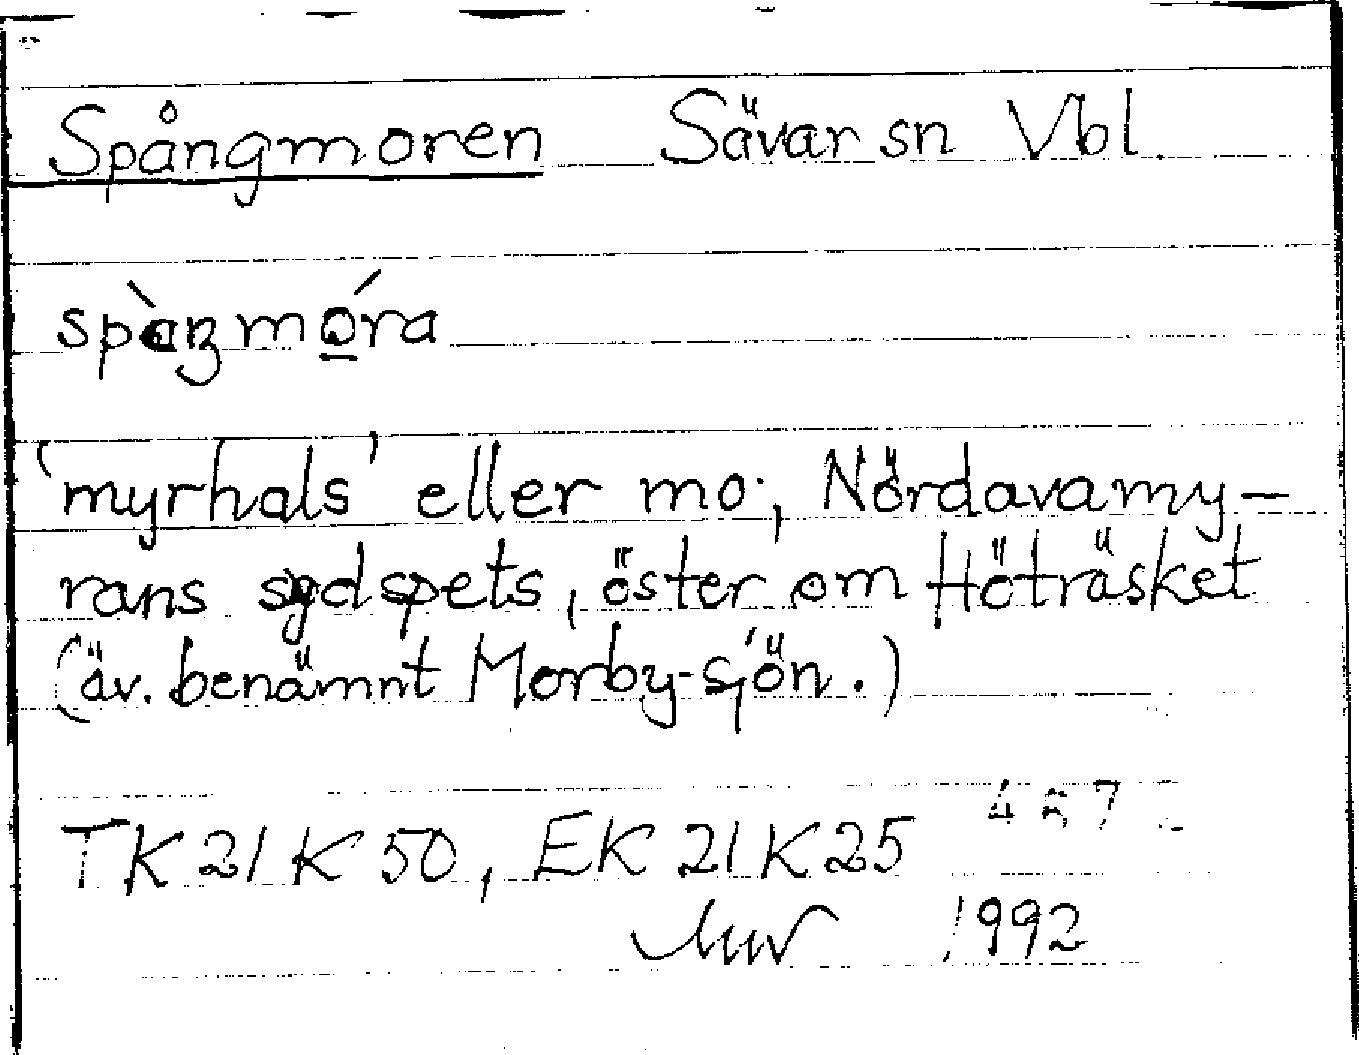 Spångmoren Sävar sn Vbl.
'myrhals' eller mo; Nördavamy-
rans sydspets, öster om Höträsket
(äv. benämnt Morby-sjön.)
TK 21 K 50, EK 21 K 25
1992